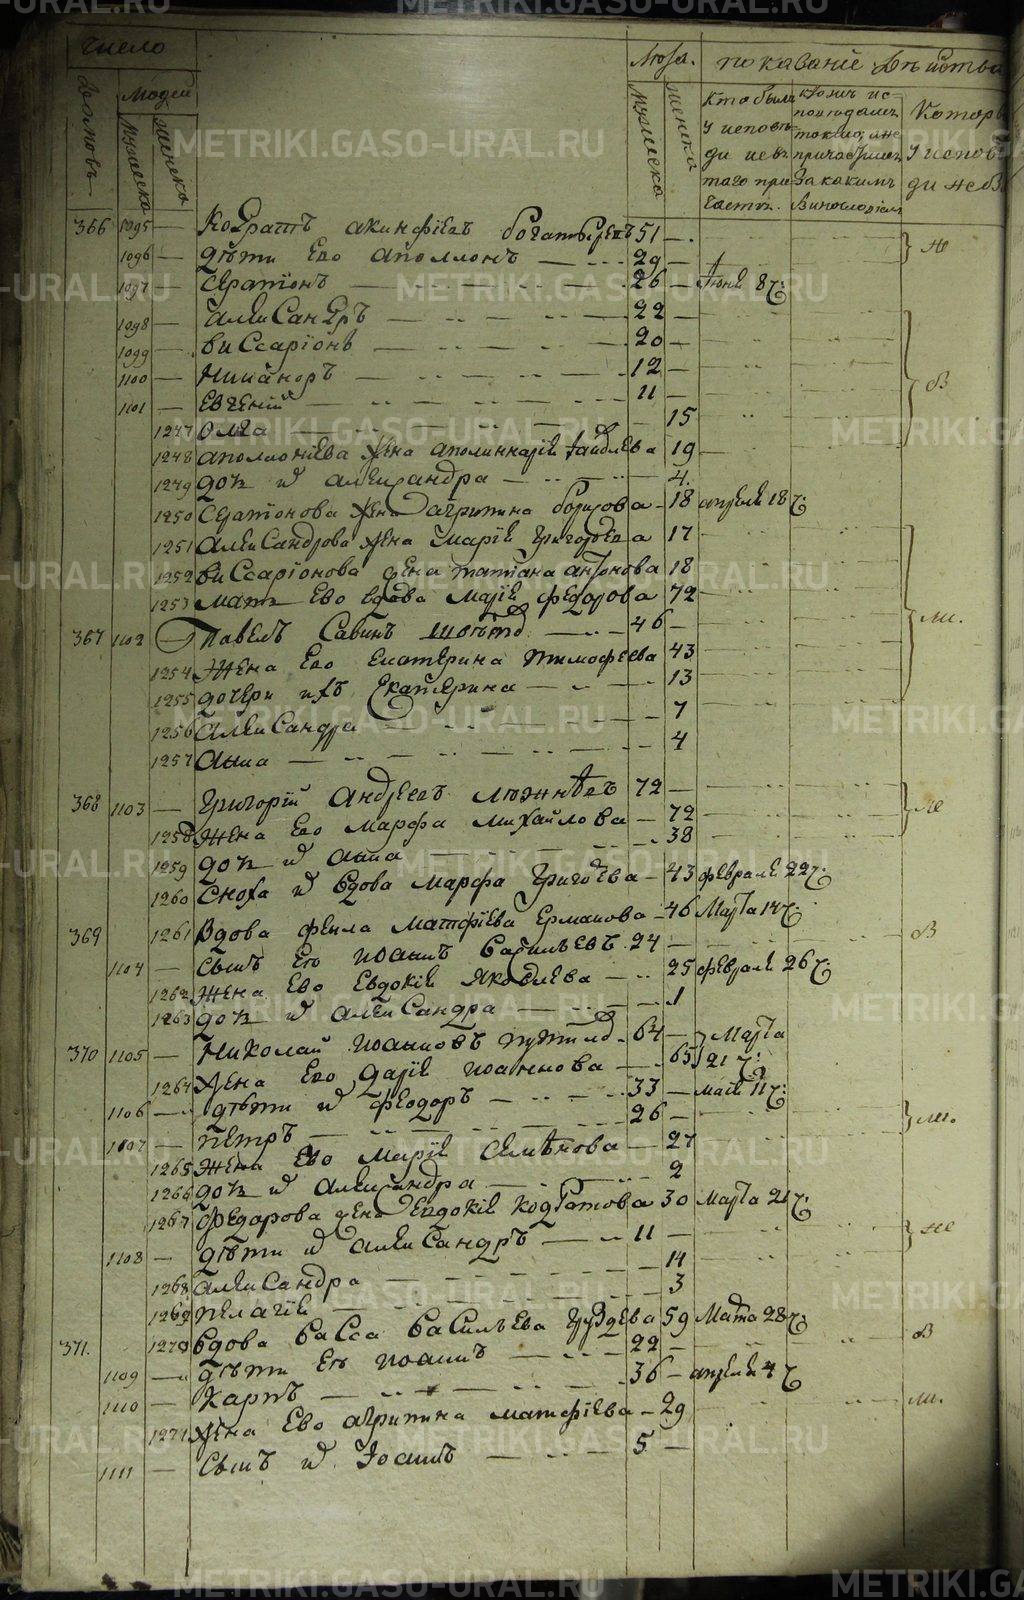 число
Лѣта.
показанїе дѣйства
домовъ
людей
мужеска
женска
мужеска
женска
Кто были
у исповѣ
ди и св
таго при
частїя.
кто ис
поведалися
токмо, а не
причастился
За какимъ
винословїемъ
Котор
у испов
ди не б
366 1095 — Кодратъ акинфїевъ богатыревъ 51 —
1096 — дѣти Его аполлонъ — 29 —
1097 — Сератїонъ — 26 — Июнѣ 8 ч:
1098 — алеѯандръ — 22 —
1099 — виссарїонъ — 20 —
1100 — Никаноръ — 12 —
1101 — Евгенїй — 11 —
1247 Олга — 15
1248 аполлонїева жена аполинарїя 19
1249 дочь и алеѯандра — 4.
1250 Сератїонова жена агрипина борисова — 18 апреля 18 ч:
1251 Алеѯандрова жена марїя григорьева 17
1252 виссарїонова жена татїана антонова 18
1253 мать Его вдова марїя федорова 72 —
367 1102 — Павелъ Савинъ 46 —
1254 Жена Его Екатерина тимофеева 43
1255 дочери ихъ Екатерина — 13
1256 алеѯандра — 7
1257 Анна — 4
368 1103 — Григорїй Андреевъ 72 —
1258 Жена Его Марфа михайлова — 72
1259 дочь и анна — 38
1260 Сноха и вдова марфа григорьева — 43 февраля 22 ч:
369 1261 Вдова фекла матфїева Ермакова — 46 Марта 14 ч:
1104 — сынъ Ея иоаннъ васильевъ 24 —
1262 Жена Его Евдокїя Яковлева — 25 февраля 26 ч:
1263 дочь и алеѯандра — 1
370 1105 — Николай иоанновъ 64 — Марта
1264 Жена Его дарїя иоаннова — 65 21 ч:
1106 — дѣти и феодоръ — 33 — маїя 11 ч:
1107 — петръ — 26 —
1265 жена Его марїя семѣнова — 27
1266 дочь и алеѯандра — 2
1267 Федорова жена Евдокїя кодратова 30 марта 21 ч:
1108 — дѣти и алеѯандръ — 11 —
1268 алеѯандра — 14
1269 пелагїя — 3
371. 1270 вдова васса васильева груздева 59 Марта 28 ч:
1109 — дѣти Ея иоаннъ — 22 —
1110 — Карпъ — 36 — апреля 4 ч
1271 жена Его агрипина матфїева — 29
1111 — сынъ и Иоаннъ — 5 —
METRIKI.GASO-URAL.RU